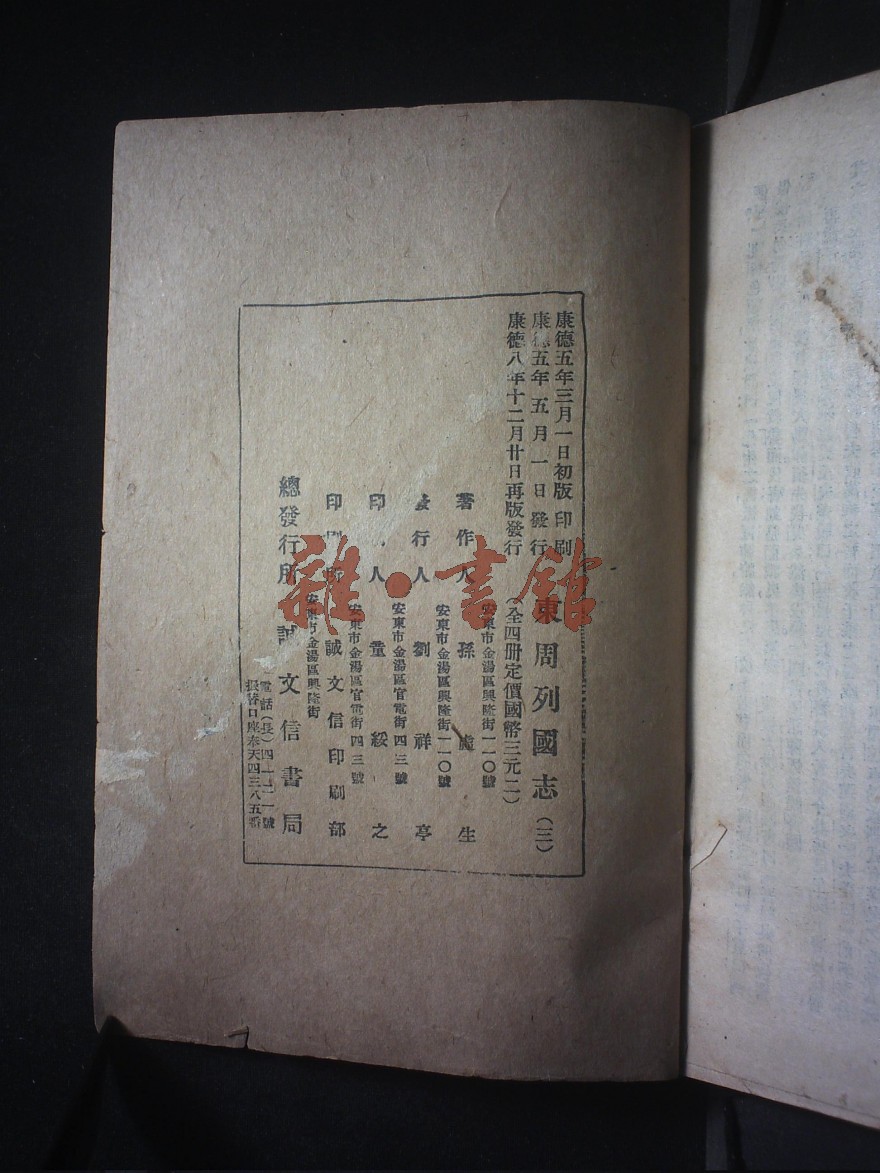 康德五年三月一日初版印刷
康德五年五月一日發行
康德八年十二月廿日再版發行
東周列國志（三）
（全四册定價國幣三元二）
安東市金湯區興隆街一一〇號
著作人 孫虛生
安東市金湯區興隆街一一〇號
發行人 劉祥亭
安東市金湯區官電街四三號
印 人 董綏之
安東市金湯區官電街四三號
印刷所 誠文信印刷部
安東市金湯區興隆街
總發行所 誠文信書局
電話（長）四一二一號
振替口座奉天四三八五番
雜·書館